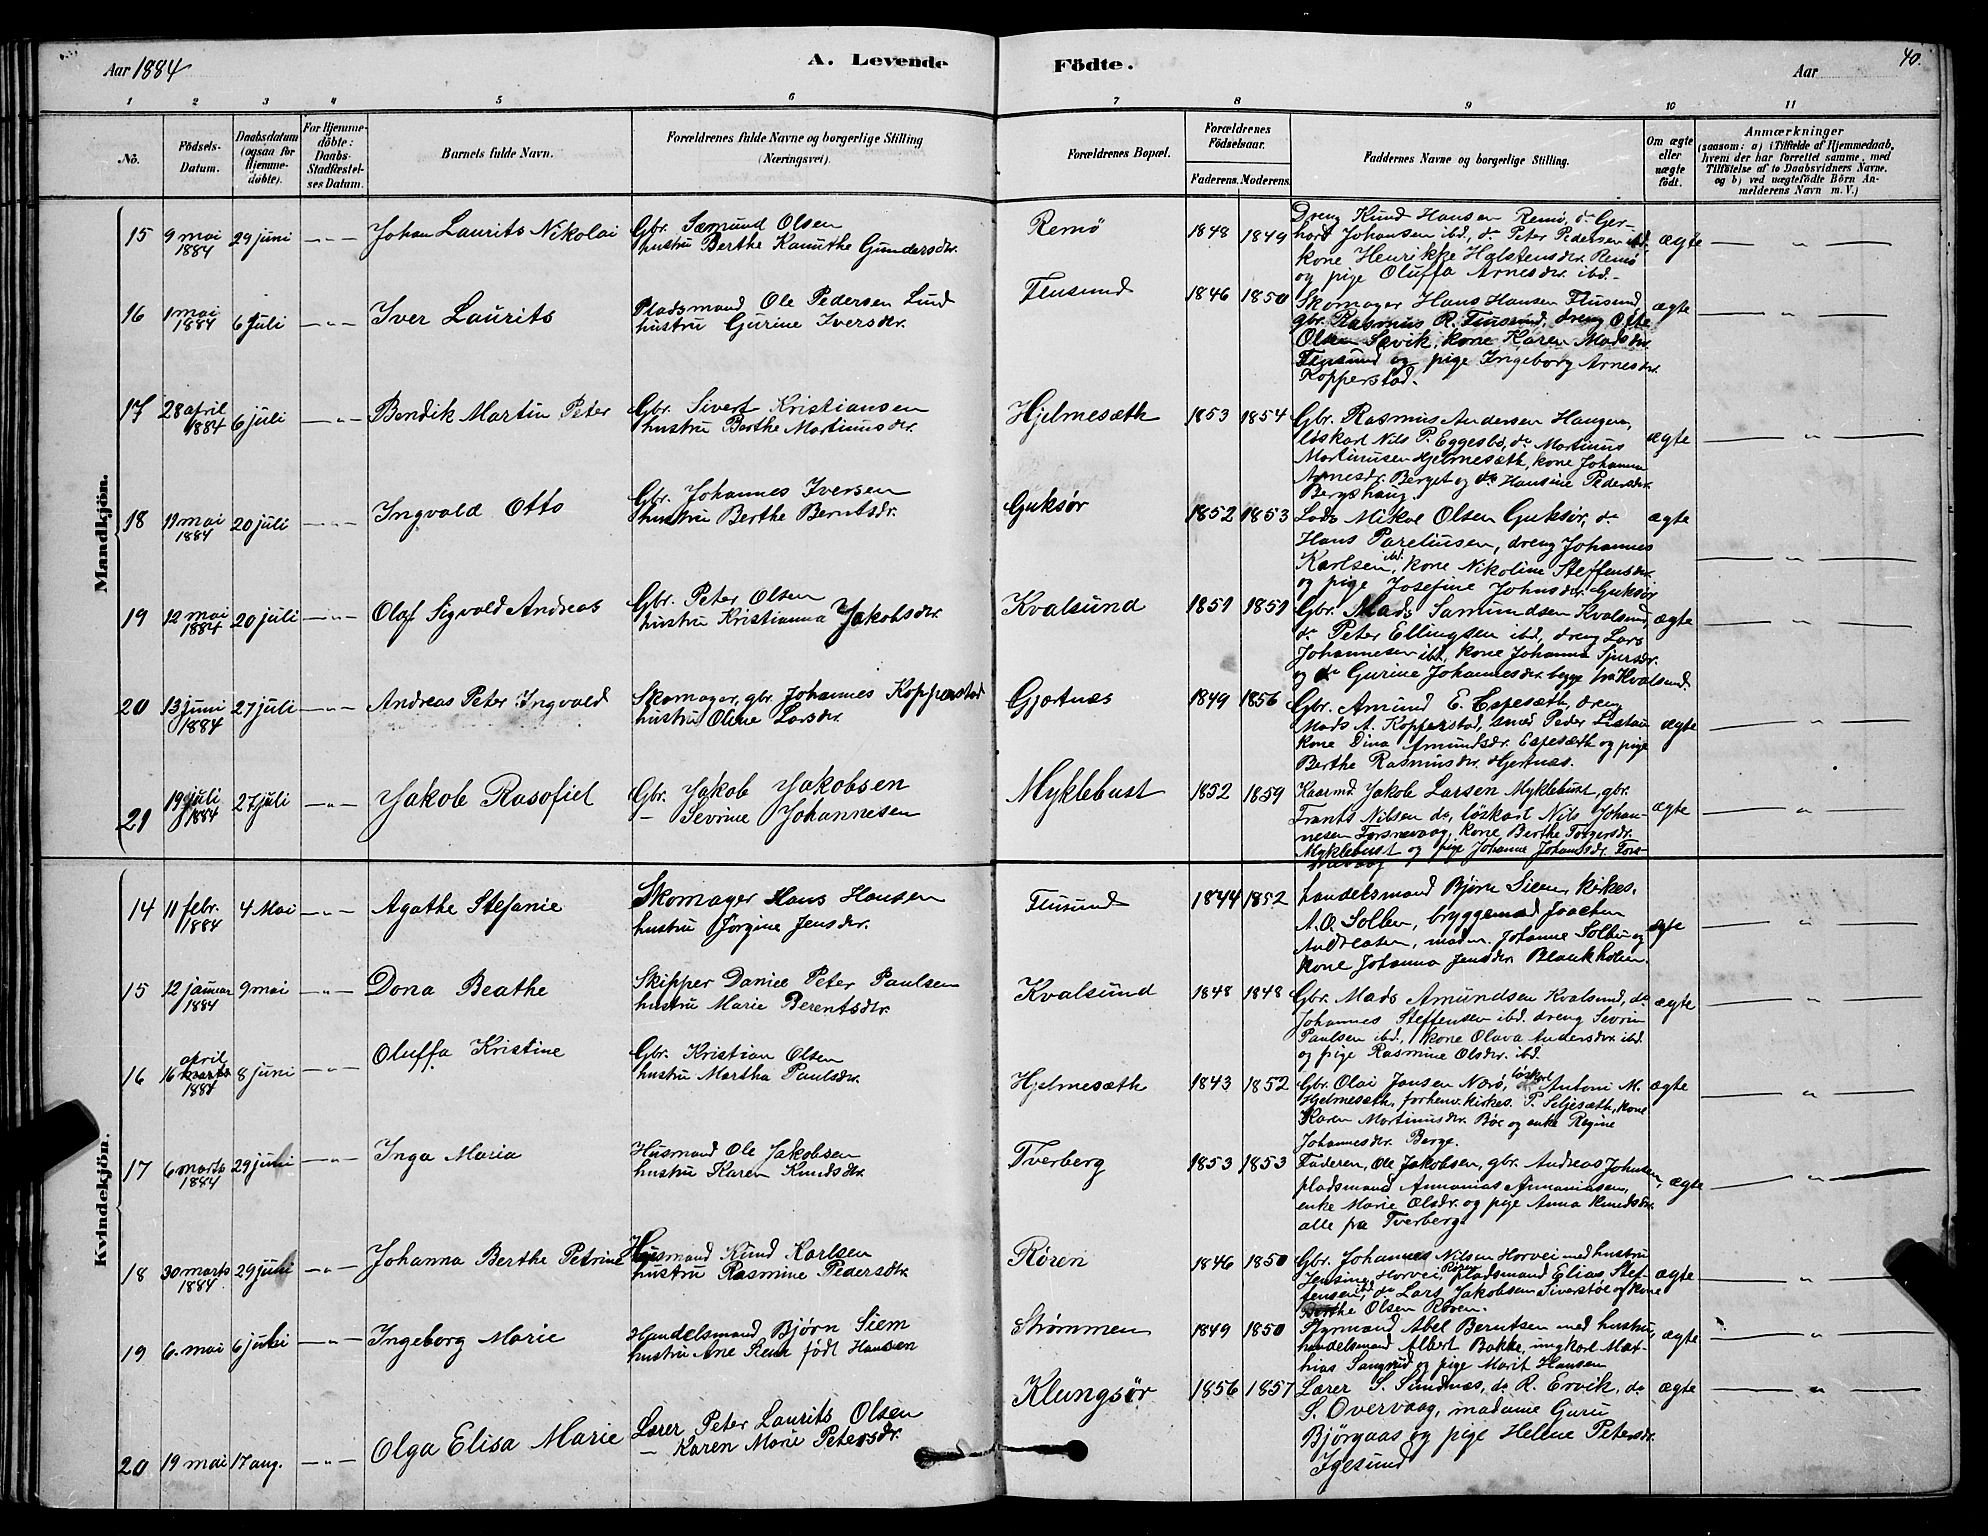 Aar 1884
A. Levende
Födte.
Aar
40.
1 2 3 4 5 6 7 8 9 10 11
No.
Födsels-Datum.
Daabsdatum (ogsaa for Hjemme-döbte).
For Hjemme-döbte: Daabs-Stadfæstel-ses Datum.
Barnets fulde Navn.
Forældrenes fulde Navne og borgerlige Stilling (Næringsvei).
Forældrenes Bopæl.
Forældrenes Födselsaar.
Faderens. Moderens.
Faddernes Navne og borgerlige Stilling.
Om ægte eller uægte födt.
Anmærkninger
(saasom: a) i Tilfælde af Hjemmedaab, hvem der har forrettet samme, med Tilföielse af to Daabsvidners Navne. og b) ved uægtefödte Börn An-melderens Navn m. V.)
Mandkjön.
15 9 mai 1884 29 juni — " — Johan Laurits Nikolai
Gbr. Sæmund Olsen
hustru Berthe Kanuthe Gundersdr.
Remö 1848 1849
Dreng Knud Hansen Remö, do Ger-
hard Johansen ibd., do Peter Pedersen ibd.
kone Henrikke Halstensdr. Remö
og pige Oluffa Arnesdr. ibd.
ægte — " —
16 1 mai 1884 6 juli — " — Iver Laurits
Pladsmand Ole Pedersen Lund
hustru Gurine Iversdr.
Flusund 1846 1850
Skomager Hans Hansen Flusund
gbr. Rasmus R. Flusund, dreng Otte
Olsen Skvik, kone Karen Madsdr.
Flusund og pige Ingeborg Arnesdr.
Kopperstad.
ægte — " —
17 28 april 1884 6 juli — " — Bendik Martin Peter
Gbr. Sivert Kristiansen
hustru Berthe Martinusdr.
Hjelmesæth 1853 1854
Gbr. Rasmus Andersen Haugen,
löskarl Nils P. Eggesbö, do Martinus
Martinusen Hjelmesæth, kone Johanna
Arnesdr. Berget og do Hansine Pedersdr.
Bergshaug.
ægte — " —
18 11 mai 1884 20 juli — " — Ingvald Otto
Gbr. Johannes Iversen
hustru Berthe Berntsdr.
Guksør 1852 1853
Lods Mikal Olsen Guksör, do
Hans Pareliusen, dreng Johannes
Karlsen ibd., kone Nikoline Steffensdr.
og pige Josefine Johnsdr. Guksör
ægte — " —
19 12 mai 1884 20 juli — " — Olaf Sigvald Andreas
Gbr. Peter Olsen
hustru Kristianna Jakobsdr.
Kvalsund 1851 1851
Gbr. Mads Samundsen Kvalsund,
do Peter Ellingsen ibd, dreng Lars
Johannesen ibd, kone Johanna Sjursdr.
og do Gurine Johannesdr. begge fra Kvalsund.
ægte — " —
20 13 juni 1884 27 juli — " — Andreas Peter Ingvald
Skomager, gbr. Johannes Kopperstad
hustru Oline Larsdr.
Gjertnæs 1849 1856
Gbr. Amund E. Espesæth, dreng
Mads A. Kopperstad, smed Peder Listau
kone Dina Amundsdr. Espesæth og pige
Berthe Rasmusdr. Hjertnæs.
ægte — " —
21 19 juli 1884 27 juli — " — Jakob Rasofiel
Gbr. Jakob Jakobsen
— Sevrine Johannesen
Myklebust 1852 1859
Kaarmd. Jakob Larsen Myklebust, gbr.
Frants Nilsen do, löskarl Nils Johan-
nesen Torsnevaag, kone Berthe Torgersdr.
Myklebust og pige Johanne Johansdr. Tors-
nevaag
ægte — " —
Kvindekjön.
14 11 febr. 1884 4 Mai — " — Agathe Stefanie
Skomager Hans Hansen
hustru Jörgine Jensdr.
Flusund 1844 1852
Landelsmand Bjørn Siem, kirkes.
A.O. Solber, bryggemand Joachim
Andreasen, madm. Johanne Solber og
kone Johanna Jensdr. Blankholm.
ægte — " —
15 12 januar 1884 9 mai — " — Dona Beathe
Skipper Daniel Peter Paulsen
hustru Marie Berentsdr.
Kvalsund 1848 1848
Gbr. Mads Amundsen Kvalsund, do
Johannes Steffensen ibd. dreng Sevrin
Paulsen ibd., kone Olava Andersdr. ibd
og pige Rasmine Olsdr. ibd.
ægte — " —
16 16 april marts 1884 8 juni — " — Oluffa Kristine
Gbr. Kristian Olsen
hustru Martha Paulsdr.
Hjelmesæth 1843 1852
Gbr. Olai Jansen Nærö, löskarl Antoni M.
Hjelmesæth, forhenv. kirkes. P. Seljesæth, kone
Karen Martinusdr. Böe og enke Regine
Johannesdr. Berge.
ægte — " —
17 6 marts 1884 29 juni — " — Inga Maria
Husmand Ole Jakobsen
hustru Karen Knudsdr.
Tverberg 1853 1853
Faderen, Ole Jakobsen, gbr. Andreas Johnsen,
pladsmand Annanias Annaniasen,
enke Marie Olsdr. og pige Anna Knudsdr.
alle fra Tverberg.
ægte — " —
18 30 marts 1884 29 juni — " — Johanna Berthe Petrine
Husmand Knud Karlsen
hustru Rasmine Pedersdr.
Røren 1846 1850
Gbr. Johannes Nilsen Horvei med hustru
Jensine Horvei, pladsmand Elias Stef-
fensen Røren ibd, do Lars Jakobsen Siverstöl og kone
Berthe Olsen Røren.
ægte — " —
19 6. mai 6 juli — " — Ingeborg Marie
Handelsmand Bjørn Siem
hustru Ane Siem født Hansen
Strømmen 1849 1850
Styrmand Abel Berntsen med hustru,
handelsmand Albert Bakke, ungkarl Mat-
hias Sangrud og pige Marit Hansen
ægte — " —
20 19 mai 17 aug. — " — Olga Elisa Marie
Lærer Peter Laurits Olsen
— Karen Marie Petersdr.
Klungsør 1856 1857
Lærer S. Sundnæs, do R. Ervik, do
S. Overvaag, madame Guru
Bjørgaas og pige Helene Petersdr.
Igesund
ægte — " —